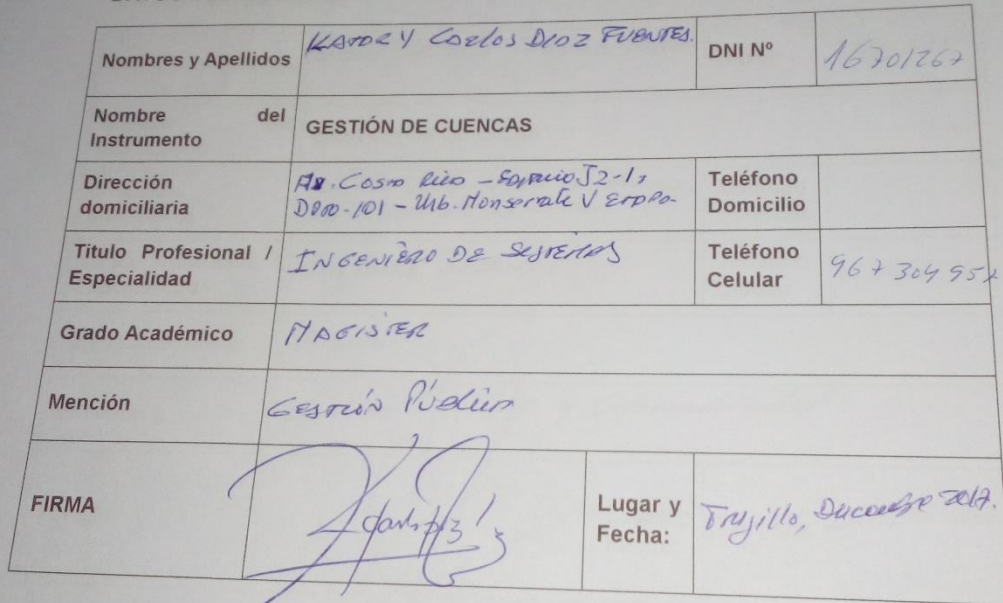 Nombres y Apellidos KATORY Carlos DIOZ FUENTES. DNI Nº 16701267
Nombre del
Instrumento GESTIÓN DE CUENCAS
Dirección
domiciliaria Av. Costa Rica - Edificio J2-1,
Dpto-101 - Urb. Monserrate V Etapa-
Teléfono
Domicilio
Titulo Profesional /
Especialidad INGENIERO DE SISTEMAS
Teléfono
Celular 967 304 957
Grado Académico MAGISTER
Mención GESTIÓN PÚBLICA
FIRMA
Lugar y
Fecha: Trujillo, Diciembre 2017.